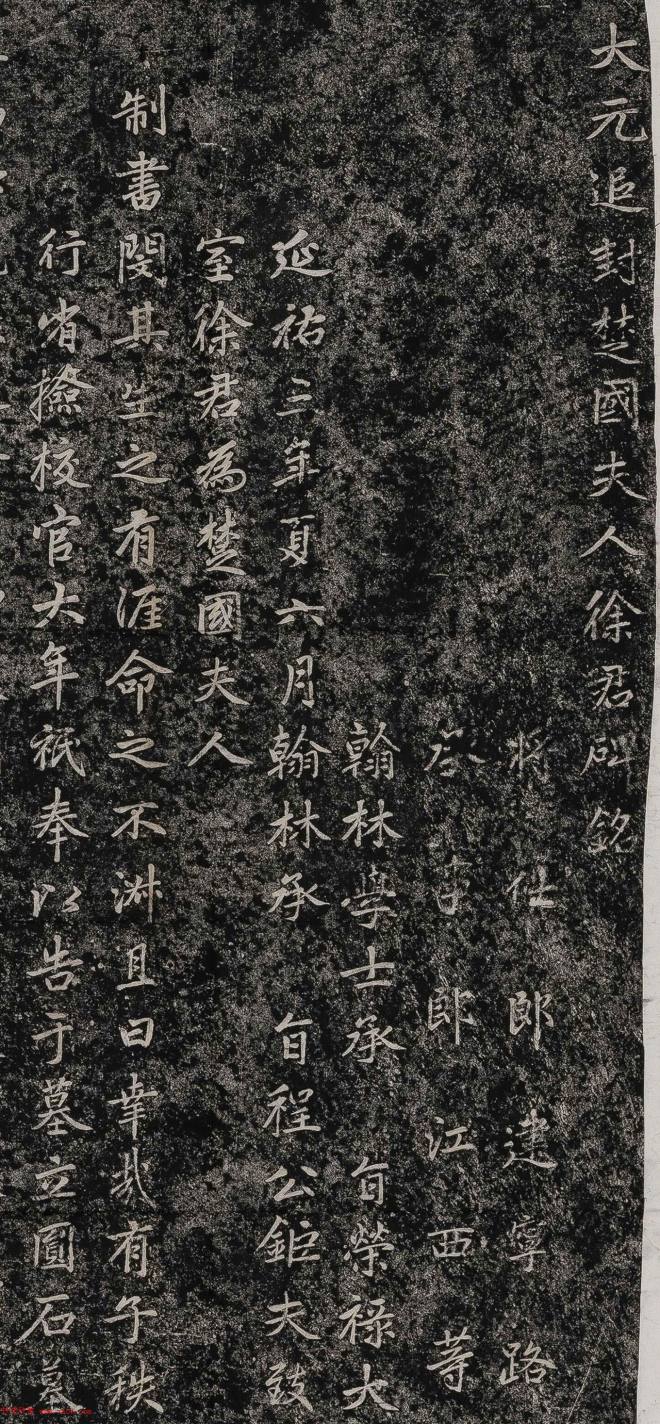 大元追封楚國夫人徐君碑銘
將仕郎建寧路
承事郎江西等
翰林學士承旨榮祿大
延祐三年夏六月翰林承旨程公鉅夫致
室徐君為楚國夫人
制書閔其生之有涯命之不淑且曰幸哉有子秩
行省撿校官大年祇奉以告于墓立圓石墓